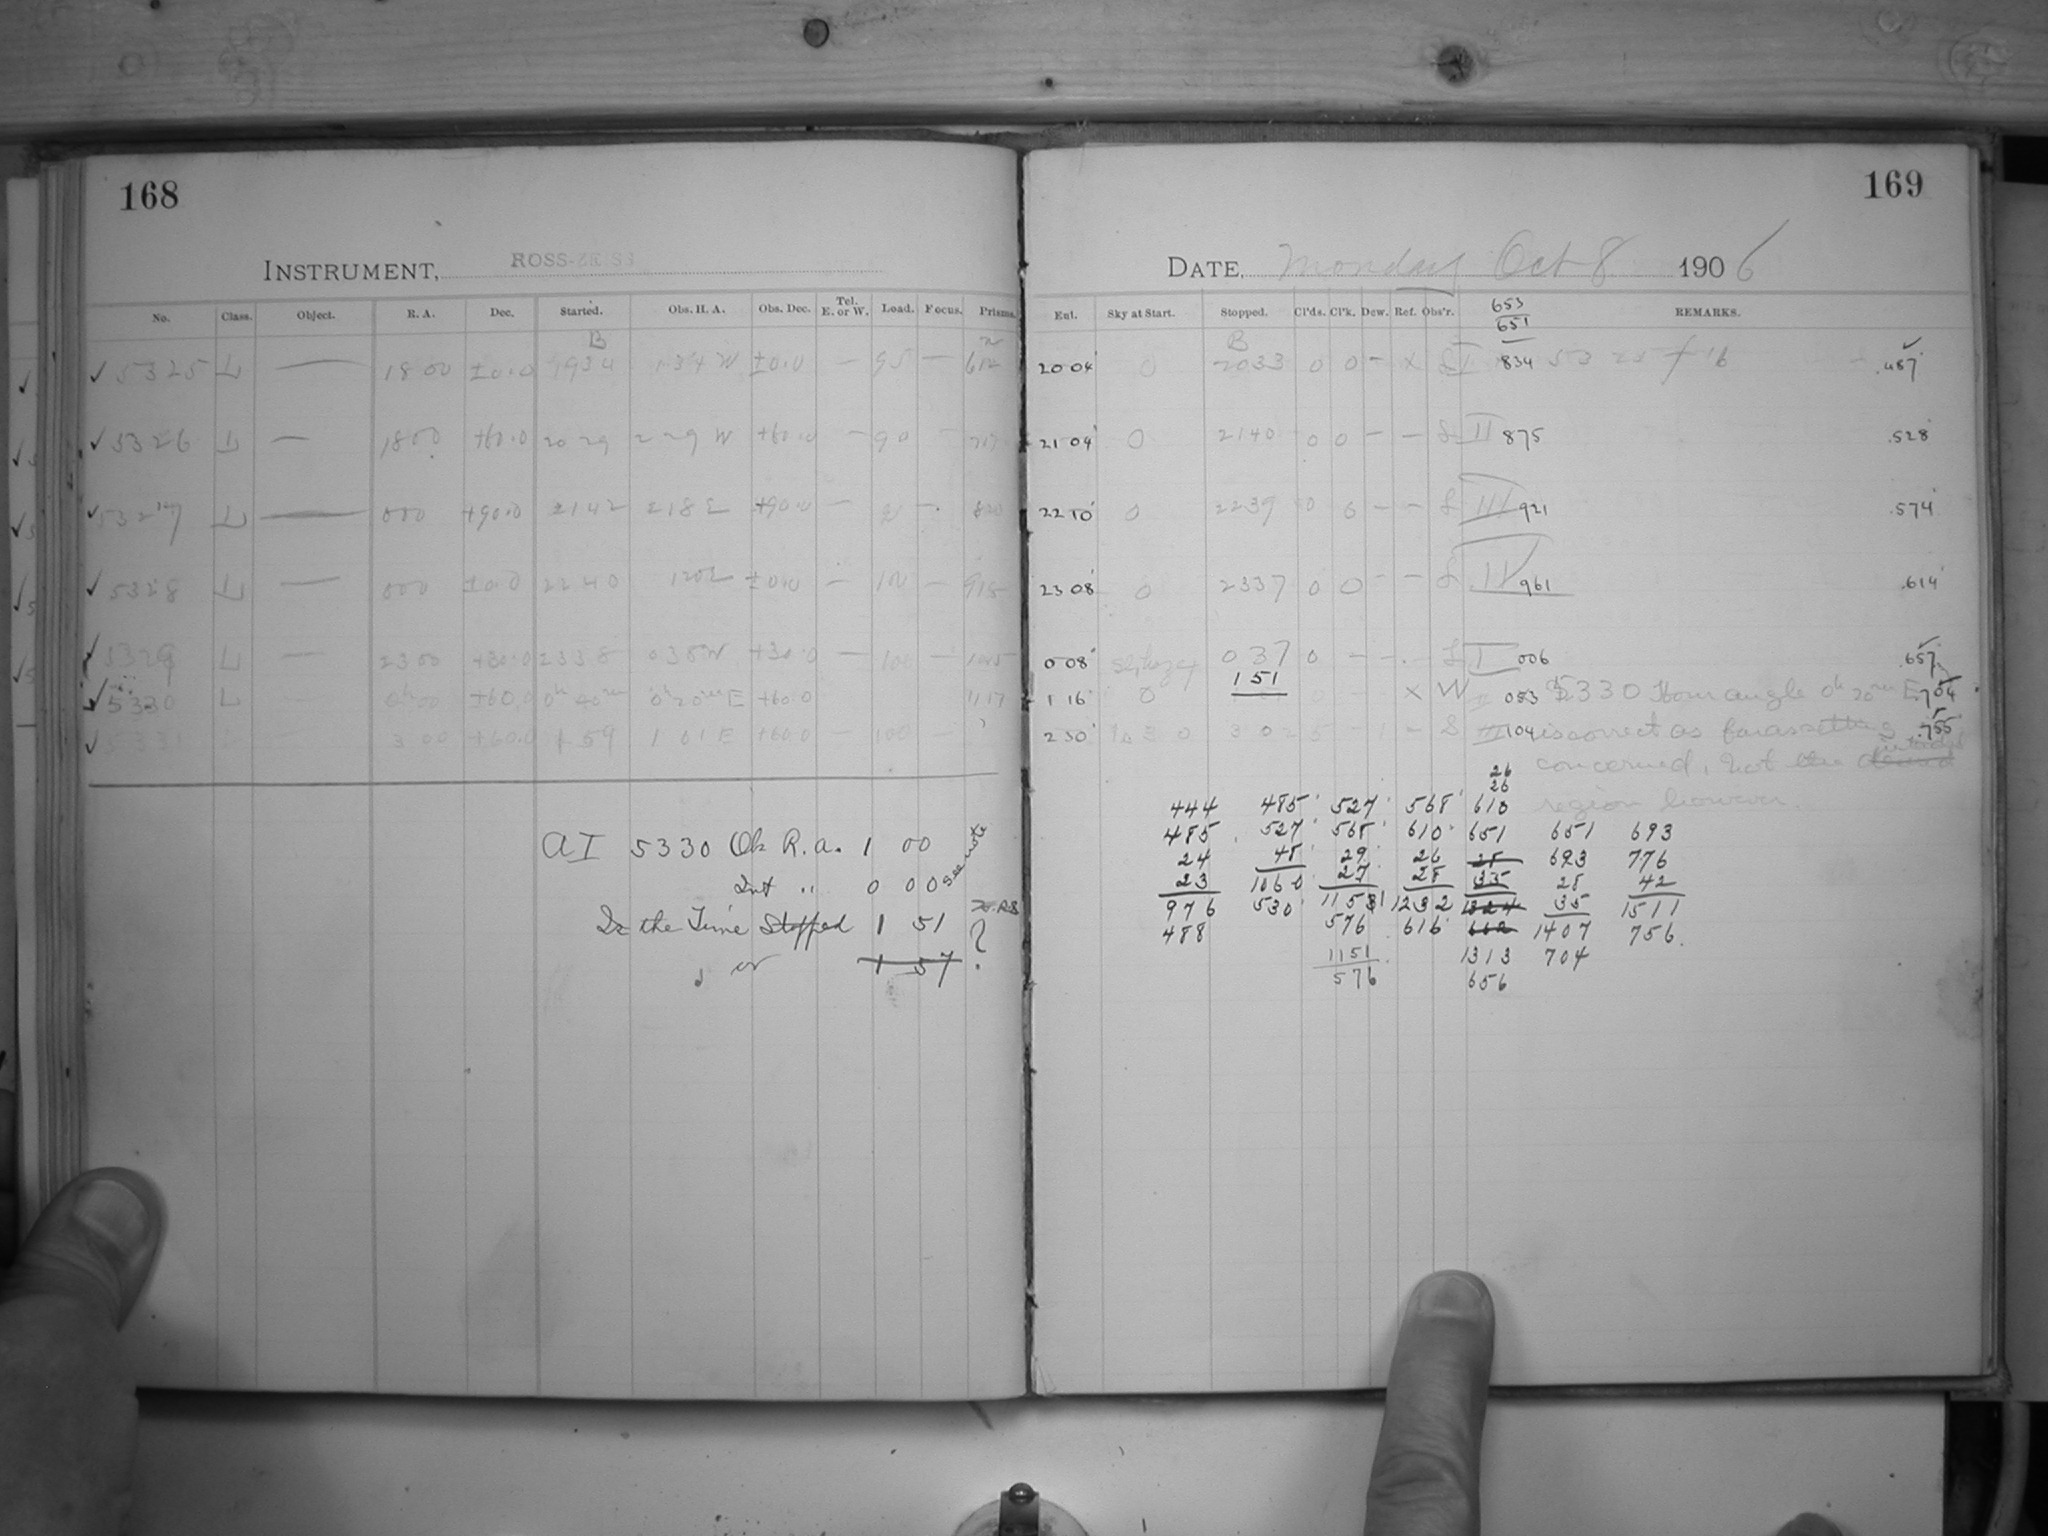 168
INSTRUMENT, ROSS-ZEISS
No. Class. Object. R. A. Dec. Started. Obs. H. A. Obs. Dec. Tel. E. or W. Load. Focus. Prisms.
B
✓ 5325 L — 18 00 ±0.0 1934 1 34 W ±0.0 — 95 — 612
✓ 5326 L — 18 00 +60.0 20 29 2 29 W +60.0 — 90 — 717
✓ 5327 L — 0 00 +90.0 2142 2 18 E +90.0 — —
✓ 5328 L — 0 00 ±0.0 22 40 1 20 E ±0.0 — 100 — 915
✓ 5329 L — 23 00 +30.0 23 38 0 38 W +30.0 — 100 — 1015
✓ 5330 L — 0h 00 +60.0 0h 40m 0h 20m E +60.0 1117
✓ 5331 3 00 +60.0 1 59 1 01 E +60.0 — 100 —
AI 5330 Ok R.a. 1 00
Int " 0 00 see note
Is the Time Stopped 1 51
or 1 57 ?
169
DATE, Monday Oct 8 1906
Ent. Sky at Start. Stopped. Cl'ds. Cl'k. Dew. Ref. Obs'r. 653 REMARKS.
651
B
20 04 0 2033 0 0 - x L I 834 53 25 f 16 .487
21 09 0 2140 0 0 - - L II 875 .528
22 10 0 2239 0 0 - - L III 921 .574
23 08 0 2337 0 0 - - L IV 961 .614
0 08 sl. hazy 0 37 0 - - . L I 006 .657
1 16 0 1 51 x W II 053 5330 Hour angle 0h 20m E. .704
2 30 3 02 5 - 1 - S III 104 is correct as far as setting is .755
concerned, not the
region however
26
26
444 485 527 568 610
485 527 568 610 651 651 693
24 48 29 26 25 693 776
23 1060 27 28 35 28 42
976 530 1153 1232 1324 35 1511
488 576 616 662 1407 756
1151 1313 704
576 656